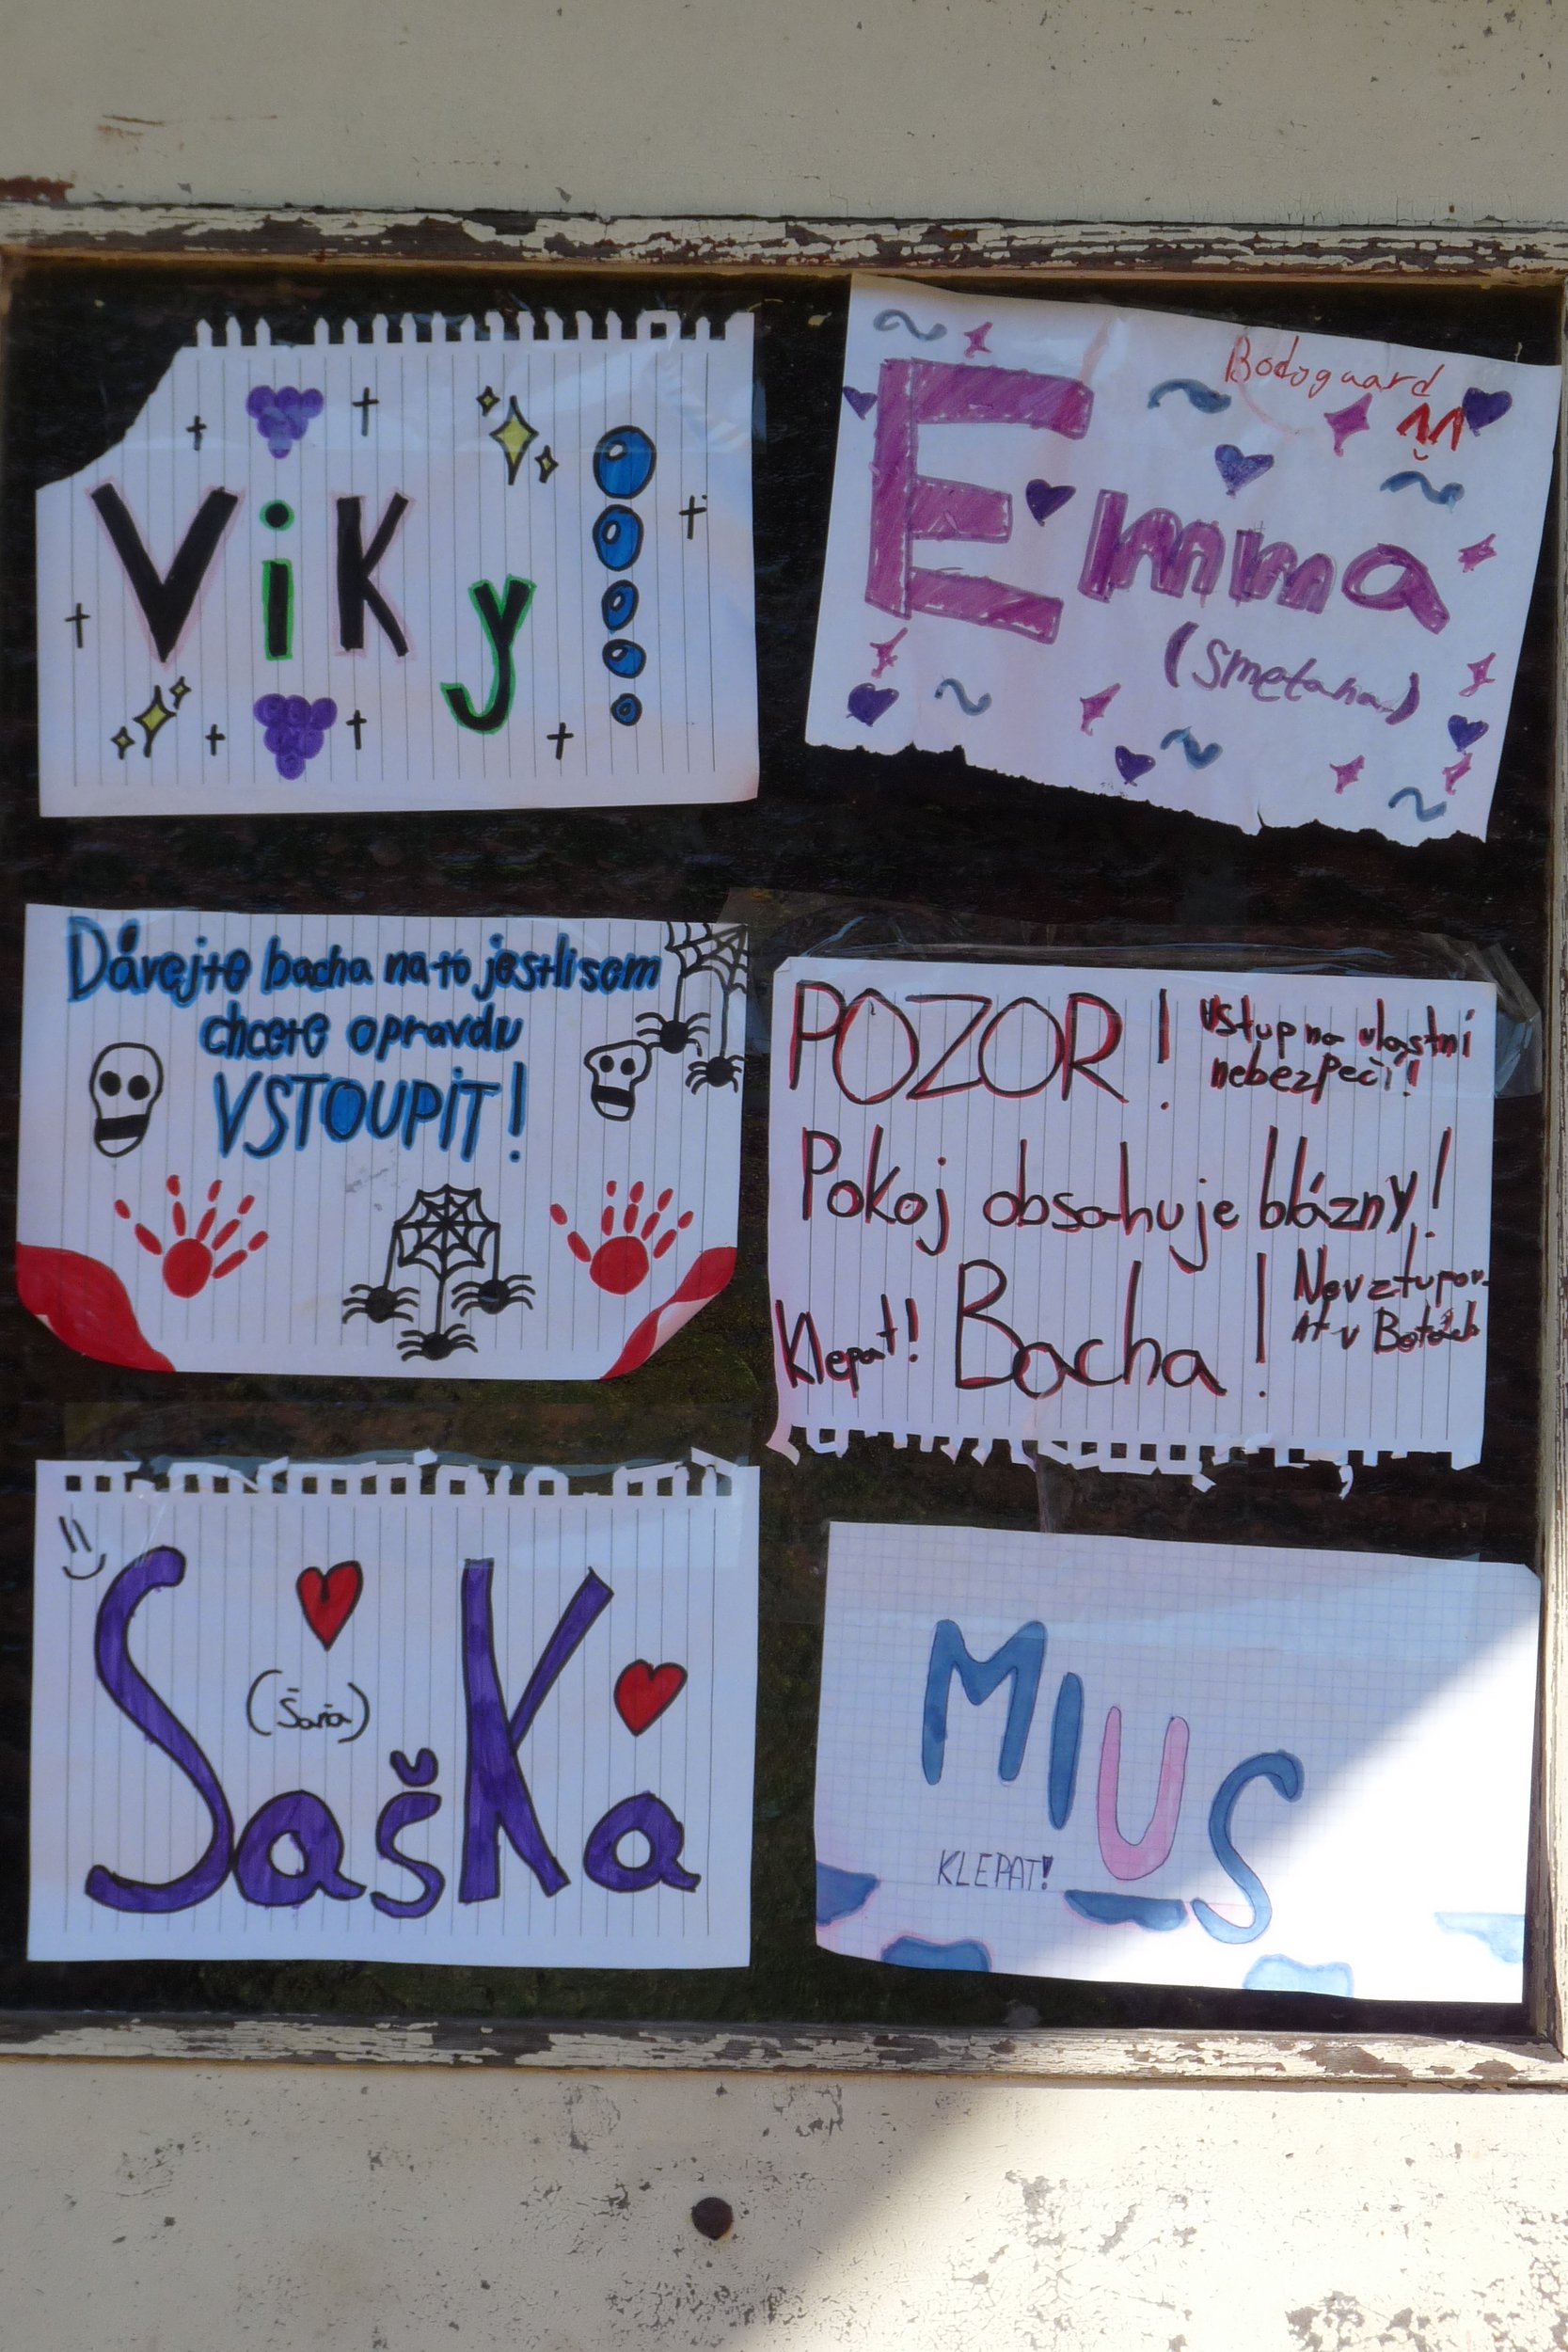 Viky
Bodyguard
Emma
(Smetana)
Dávejte bacha na to jestli sem
chcete opravdu
VSTOUPIT!
POZOR!
Vstup na vlastní
nebezpečí!
Pokoj obsahuje blázny!
Klepat!
Bacha!
Nevztupov-
at v Botách
Saška
MIUS
KLEPAT!